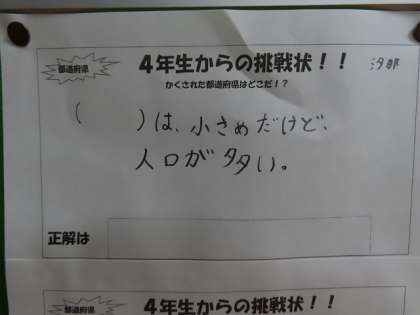 都道府県
4年生からの挑戦状！！
汐那
かくされた都道府県はどこだ！？
(　　　)は、小さめだけど、
人口が多い。
正解は
都道府県
4年生からの挑戦状！！